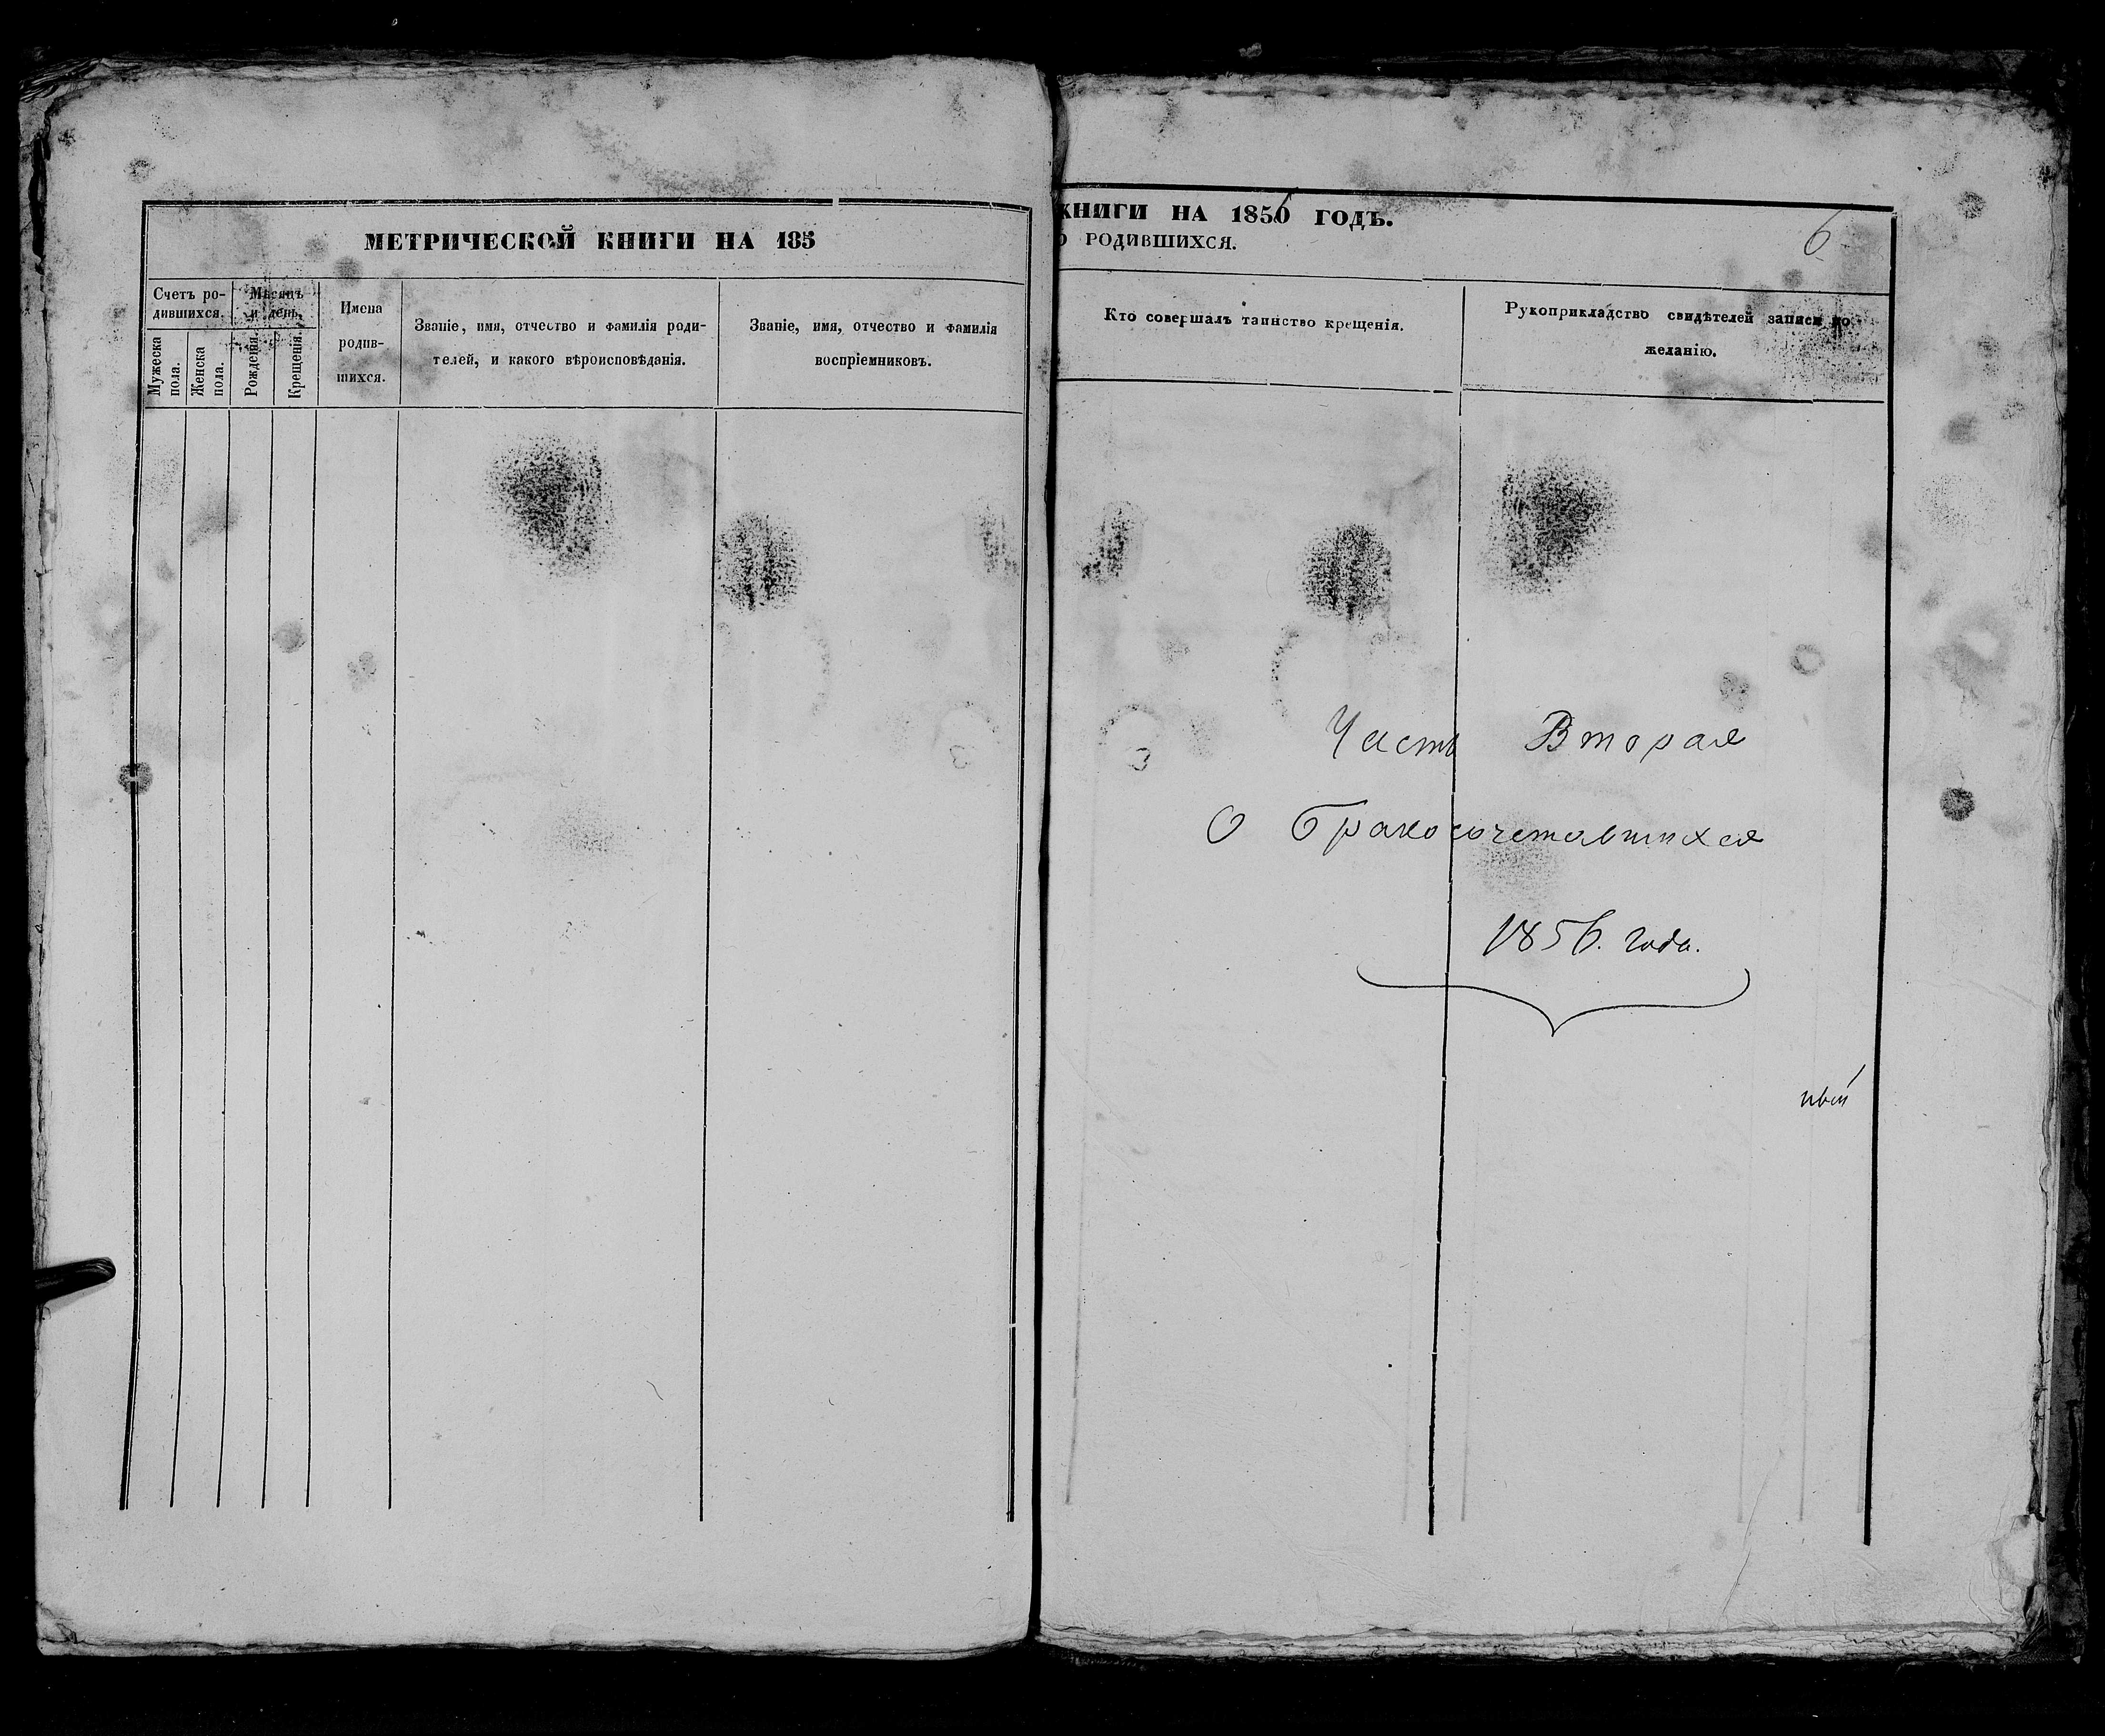 МЕТРИЧЕСКОЙ КНИГИ НА 185
Счетъ ро-
дившихся.
Мѣсяцъ
и день.
Мужеска
пола.
Женска
пола.
Рожденія.
Крещенія.
Имена
родив-
шихся.
Званіе, имя, отчество и фамилія роди-
телей, и какого вѣроисповѣданія.
Званіе, имя, отчество и фамилія
воспріемниковъ.
КНИГИ НА 1856 ГОДЪ.
О РОДИВШИХСЯ.
6
Кто совершалъ таинство крещенія.
Рукоприкладство свидѣтелей записи по
желанію.
Часть Вторая
О бракосочетавшихся
1856. года.